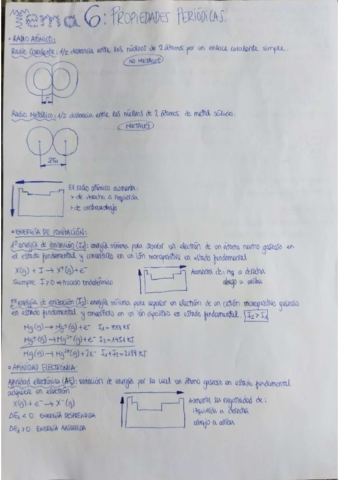 Tema 6: PROPIEDADES PERIÓDICAS.
• RADIO ATÓMICO:
Radio Covalente: 1/2 distancia entre los núcleos de 2 átomos por un enlace covalente simple.
NO METALES
Radio Metálico: 1/2 distancia entre los núcleos de 2 átomos de metal sólido.
METALES
El radio atómico aumenta:
• de derecha a izquierda
• de arriba abajo
• ENERGÍA DE IONIZACIÓN:
1ª energía de ionización (I₁): energía mínima para separar un electrón de un átomo neutro gaseoso en
el estado fundamental y convertirlo en un ión monopositivo en estado fundamental
X(g) + I → X⁺(g) + e⁻
Siempre I>0 → proceso endotérmico
Aumenta de: izq a derecha
abajo a arriba
2ª energía de ionización (I₂): energía mínima para separar un electrón de un catión monopositivo gaseoso
en estado fundamental y convertirlo en un ión dipositivo en estado fundamental. I₂ > I₁
Mg(g) → Mg⁺(g) + e⁻ I₁ =
Mg⁺(g) → Mg²⁺(g) + e⁻ I₂ =
Mg(g) → Mg²⁺(g) + 2e⁻ I₁ + I₂ =
• AFINIDAD ELECTRÓNICA:
Afinidad electrónica (AE): variación de energía por la cual un átomo gaseoso en estado fundamental
adquiere un electrón
X(g) + e⁻ → X⁻(g)
ΔE < 0 ENERGÍA DESPRENDIDA
ΔE > 0 ENERGÍA ABSORBIDA
Aumenta la negatividad de:
izquierda a derecha
abajo a arriba